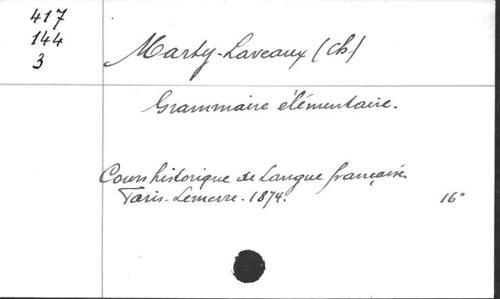 417
144
3
Marty-Laveaux (Ch)
Grammaire élémentaire.
Cours historique de Langue française.
Paris-Lemerre-1874. 16°